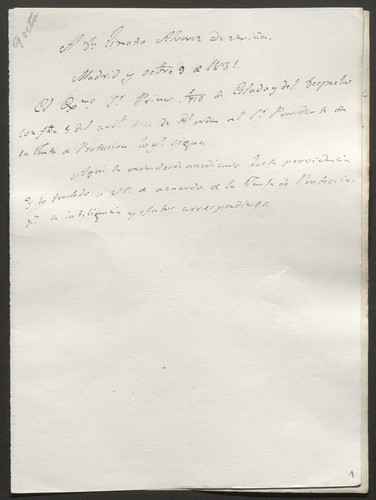 A Dn Timoteo Alvarez de
Madrid y octre 9 de 1831.
El Exmo Sr Primer Srio de Estado y del Despacho
con fha 5 del me dice de Rl orden al Sr Presidente de
la Junta de Proteccion lo qe sigue.
Aqui la orden hasta providencia
y lo traslado a VS de acuerdo de la Junta de Proteccion
pa su inteligencia y efectos correspondientes.
1